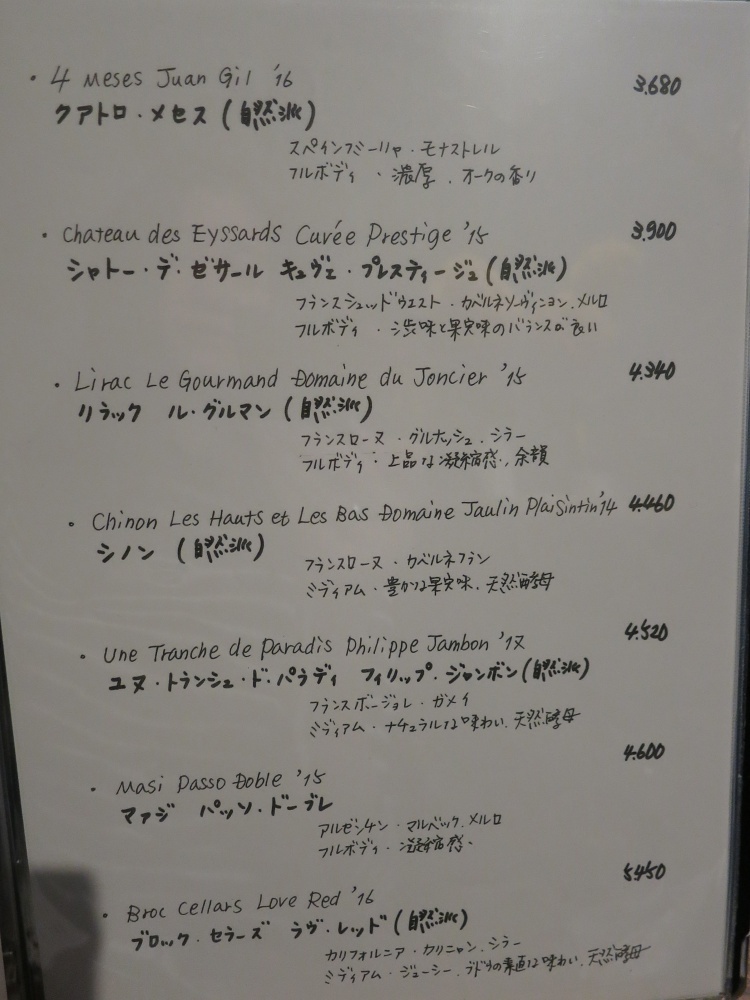 · 4 Meses Juan Gil '16 3.680
クアトロ・メセス (自然派)
スペインフミーリャ・モナストレル
フルボディ・濃厚・オークの香り
· Chateau des Eyssards Cuvée Prestige '15 3.900
シャトー・デ・ゼサール キュヴェ・プレスティージュ (自然派)
フランスシュッドウエスト・カベルネソーヴィニヨン、メルロ
フルボディ・渋味と果実味のバランスが良い
· Lirac Le Gourmand Domaine du Joncier '15 4.340
リラック ル・グルマン (自然派)
フランスローヌ・グルナッシュ、シラー
フルボディ・上品な凝縮感、余韻
· Chinon Les Hauts et Les Bas Domaine Jaulin Plaisintin '14 4.460
シノン (自然派)
フランスローヌ・カベルネフラン
ミディアム・豊かな果実味、天然酵母
· Une Tranche de Paradis Philippe Jambon '12 4.520
ユヌ・トランシュ・ド・パラディ フィリップ・ジャンボン (自然派)
フランスボージョレ・ガメイ
ミディアム・ナチュラルな味わい、天然酵母
· Masi Passo Doble '15 4.600
マァジ パッソ・ドーブレ
アルゼンチン・マルベック、メルロ
フルボディ・凝縮感、
· Broc Cellars Love Red '16 5450
ブロック・セラーズ ラヴ・レッド (自然派)
カリフォルニア・カリニャン、シラー
ミディアム・ジューシー、ブドウの素直な味わい、天然酵母